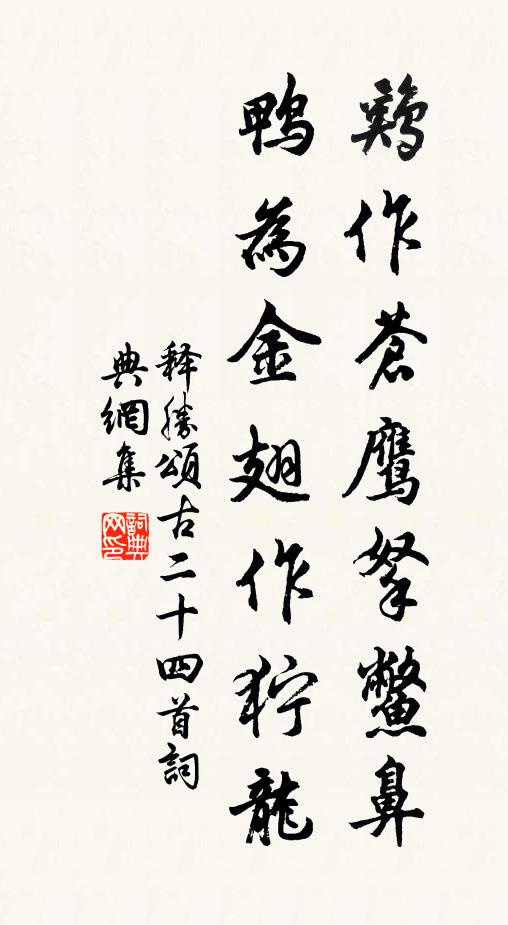 鷄作蒼鷹拏鱉鼻
鴨為金翅作狞龍
释勝頌古二十四首詞
典網集
詞典网印